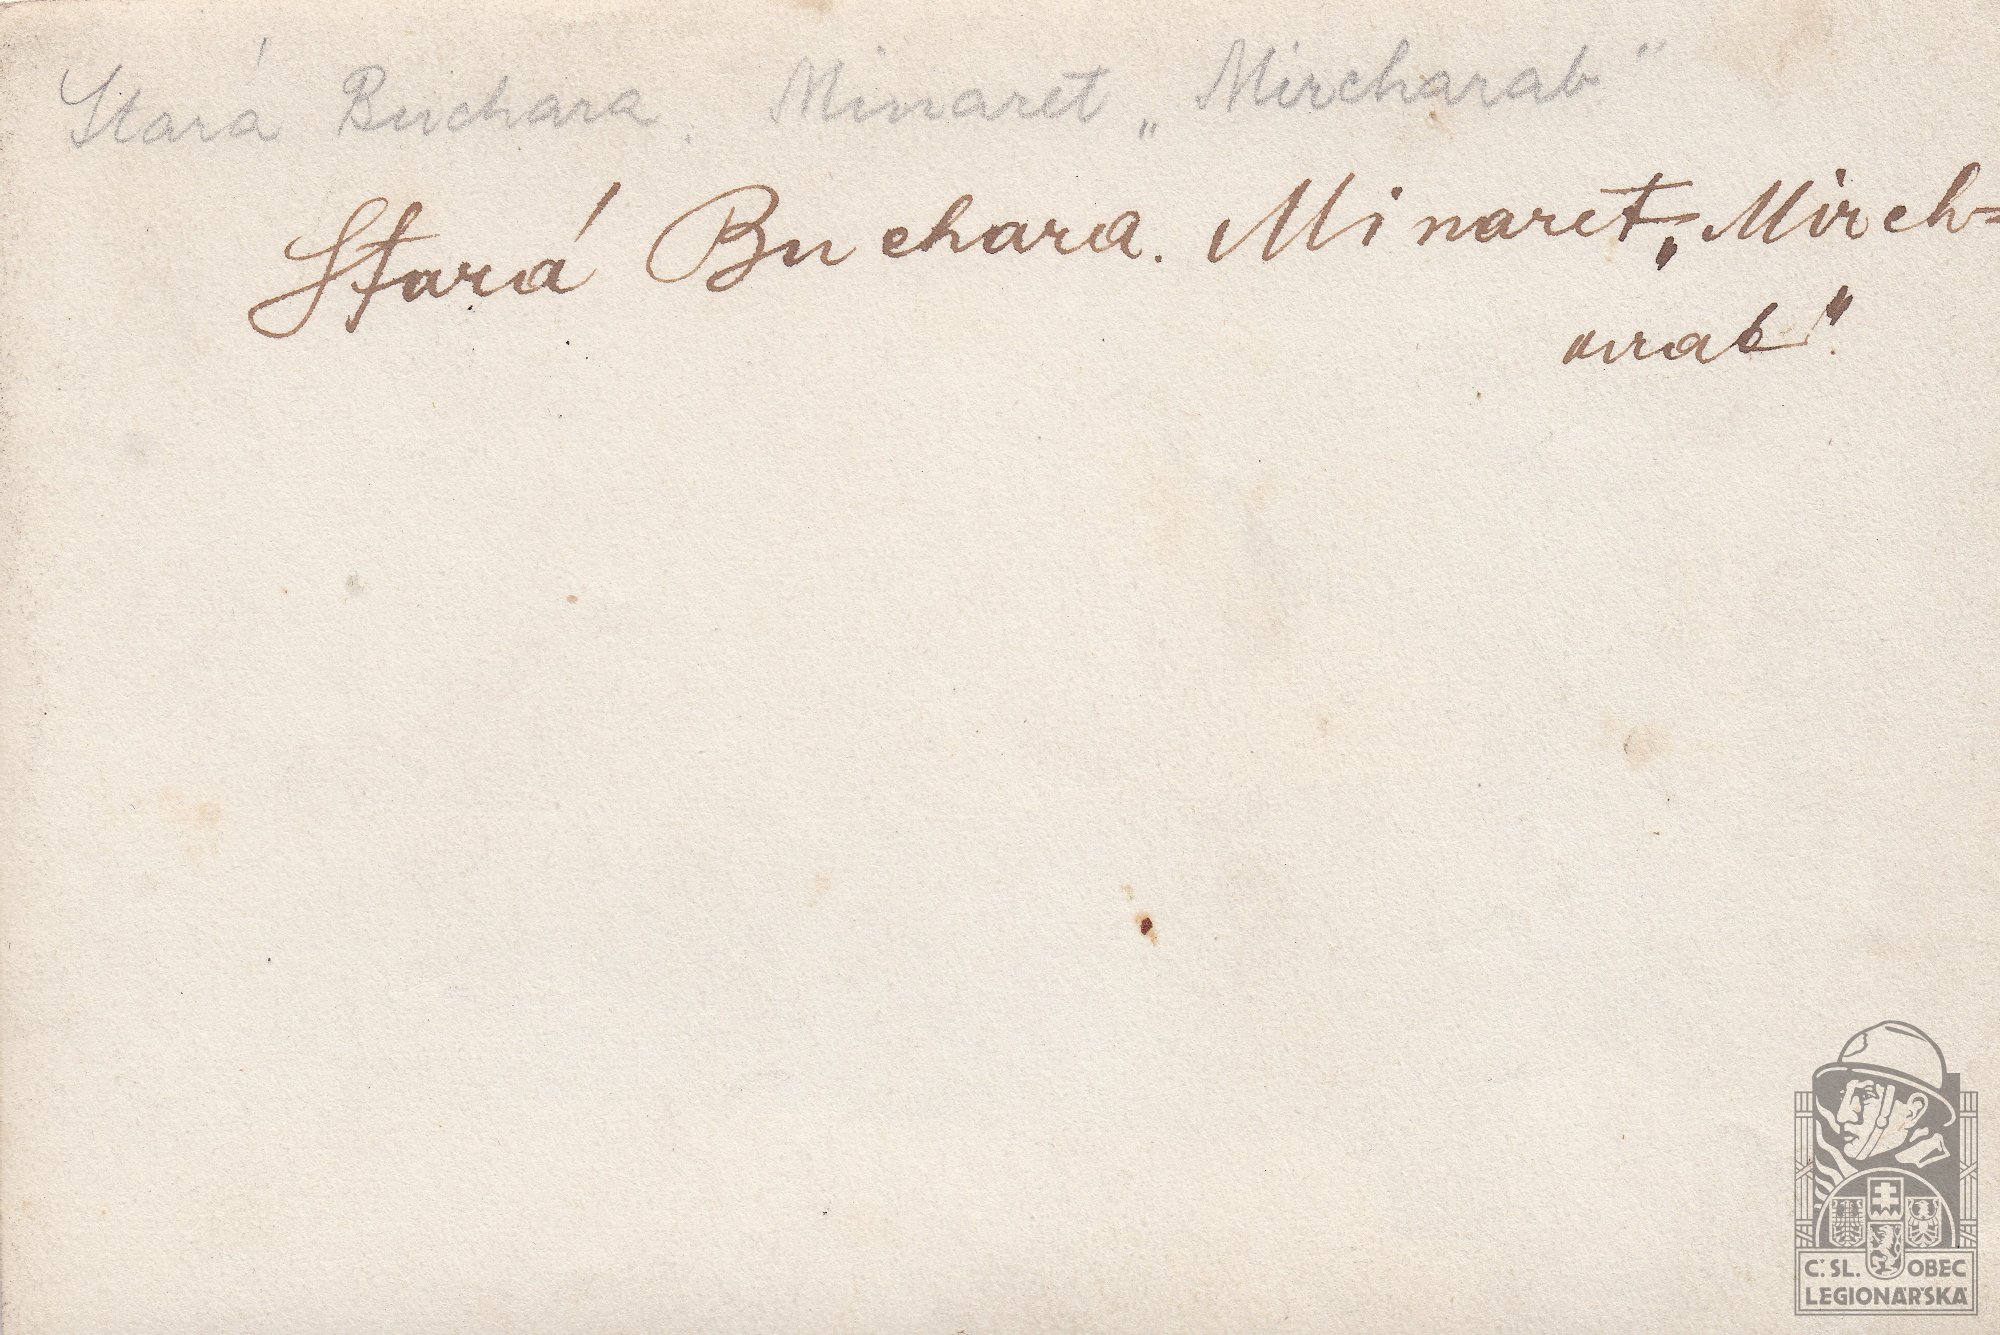 Stará Buchara. Minaret „Mircharab"
Stará Buchara. Minaret „Mirch=
arab".
Č.SL. OBEC
LEGIONÁŘSKÁ